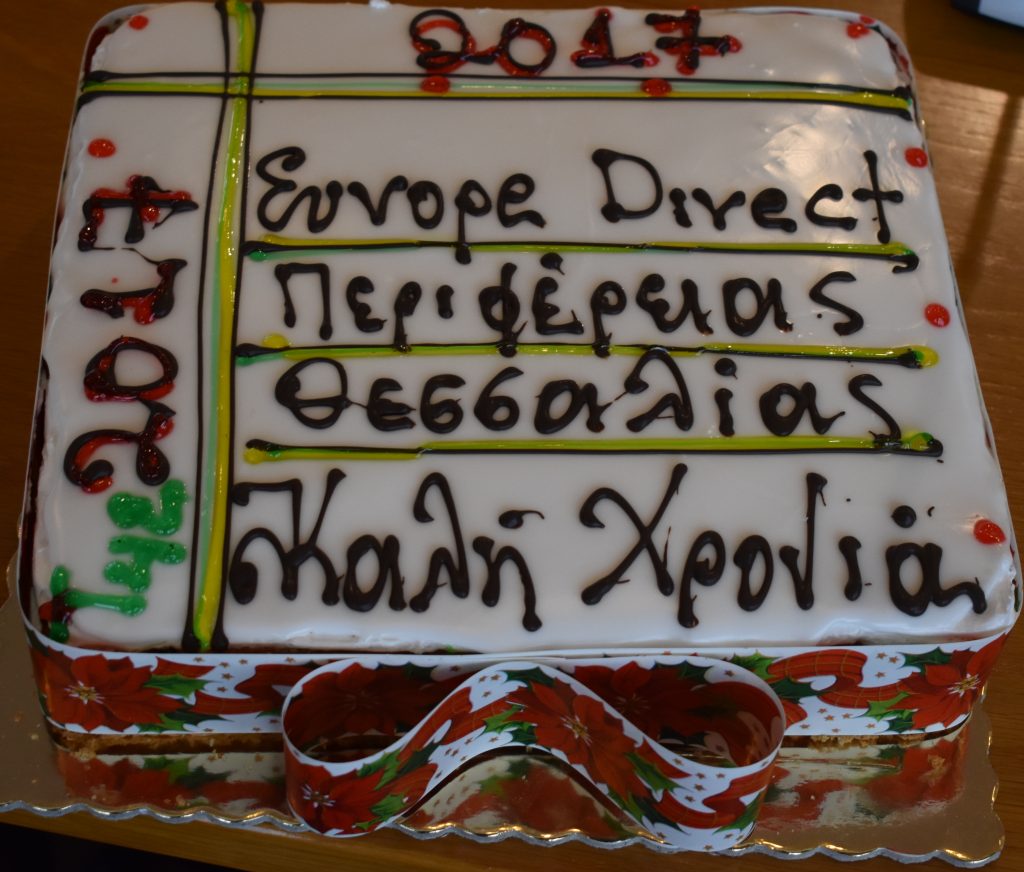 2017
Europe Direct
Περιφέρειας
Θεσσαλίας
Καλή Χρονιά
Ετος